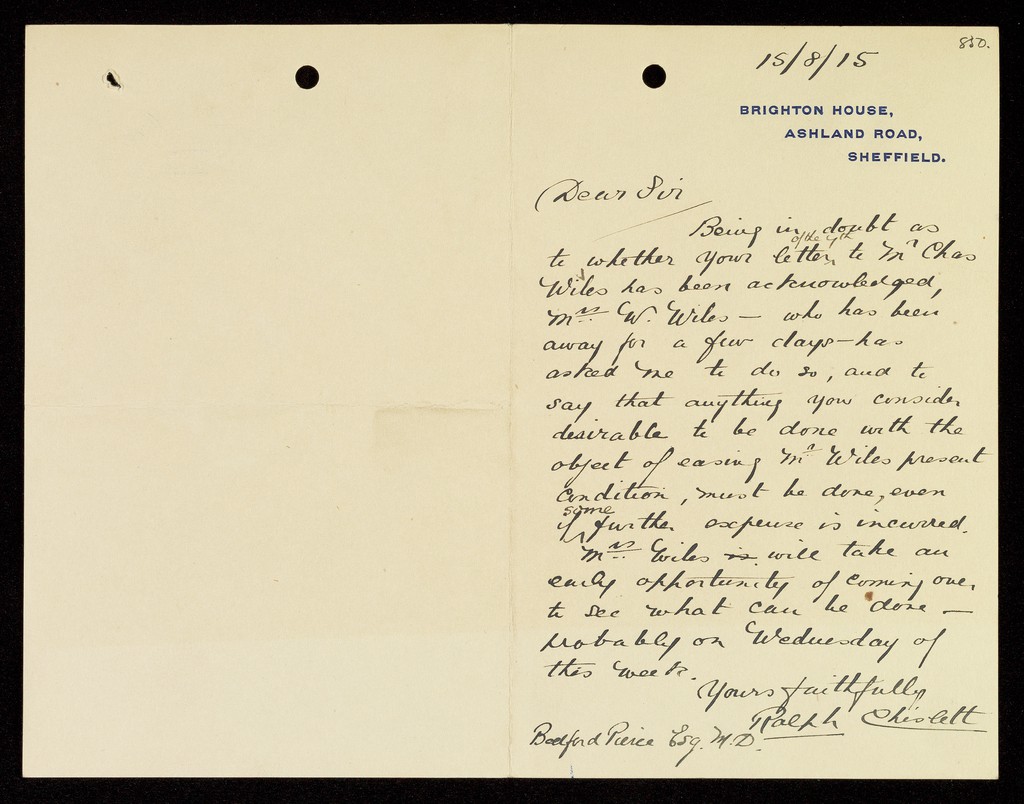 850.
15/8/15
BRIGHTON HOUSE,
ASHLAND ROAD,
SHEFFIELD.
Dear Sir
Being in doubt as
to whether your letter of the 4th to Mr Chas
Wiles has been acknowledged,
Mrs. W. Wiles — who has been
away for a few days — has
asked me to do so, and to
say that anything you consider
desirable to be done with the
object of easing Mr Wiles present
condition, must be done, even
if some further expense is incurred.
Mrs Wiles is will take an
early opportunity of coming over
to see what can be done —
probably on Wednesday of
this week.
Yours faithfully
Ralph Chislett
Bedford Pierce Esq. M.D.